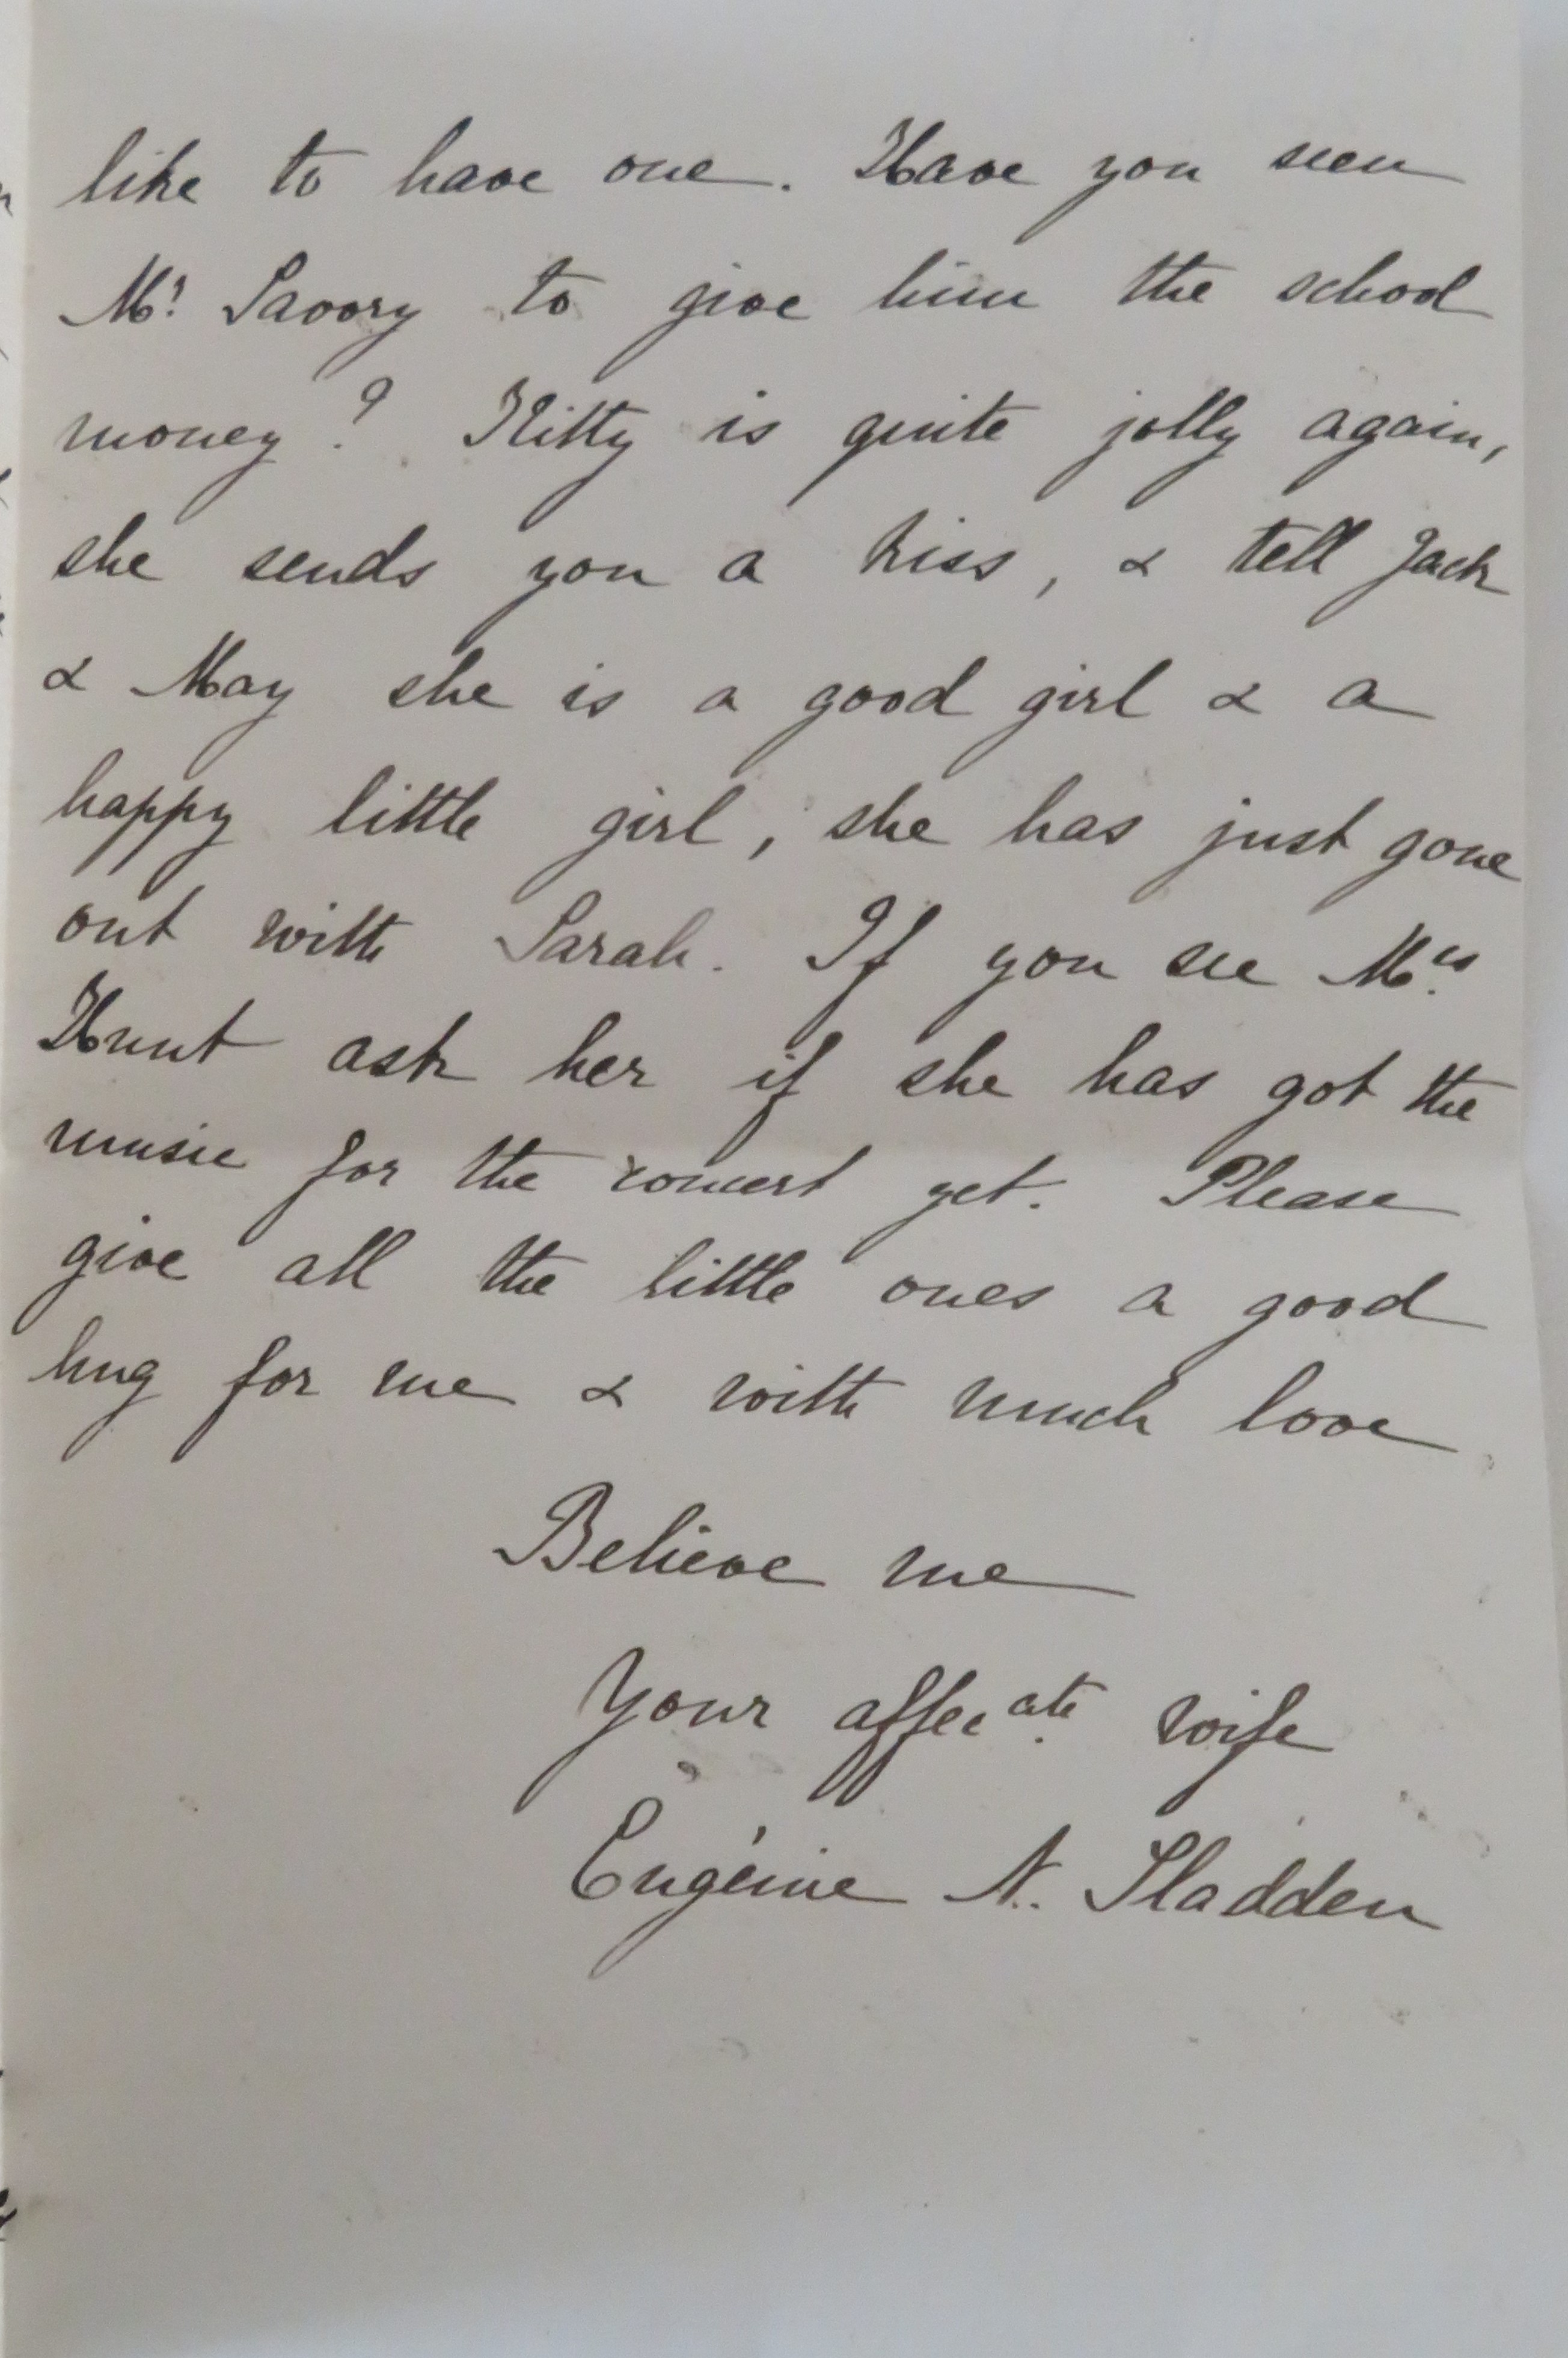 like to have one. Have you seen
Mr. Savory to give him the school
money? Kitty is quite jolly again,
she sends you a kiss, & tell Jack
& May she is a good girl & a
happy little girl, she has just gone
out with Sarah. If you see Mrs.
Hunt ask her if she has got the
music for the concert yet. Please
give all the little ones a good
hug for me & with much love
Believe me
Your affecate. wife
Eugénie N. Sladden